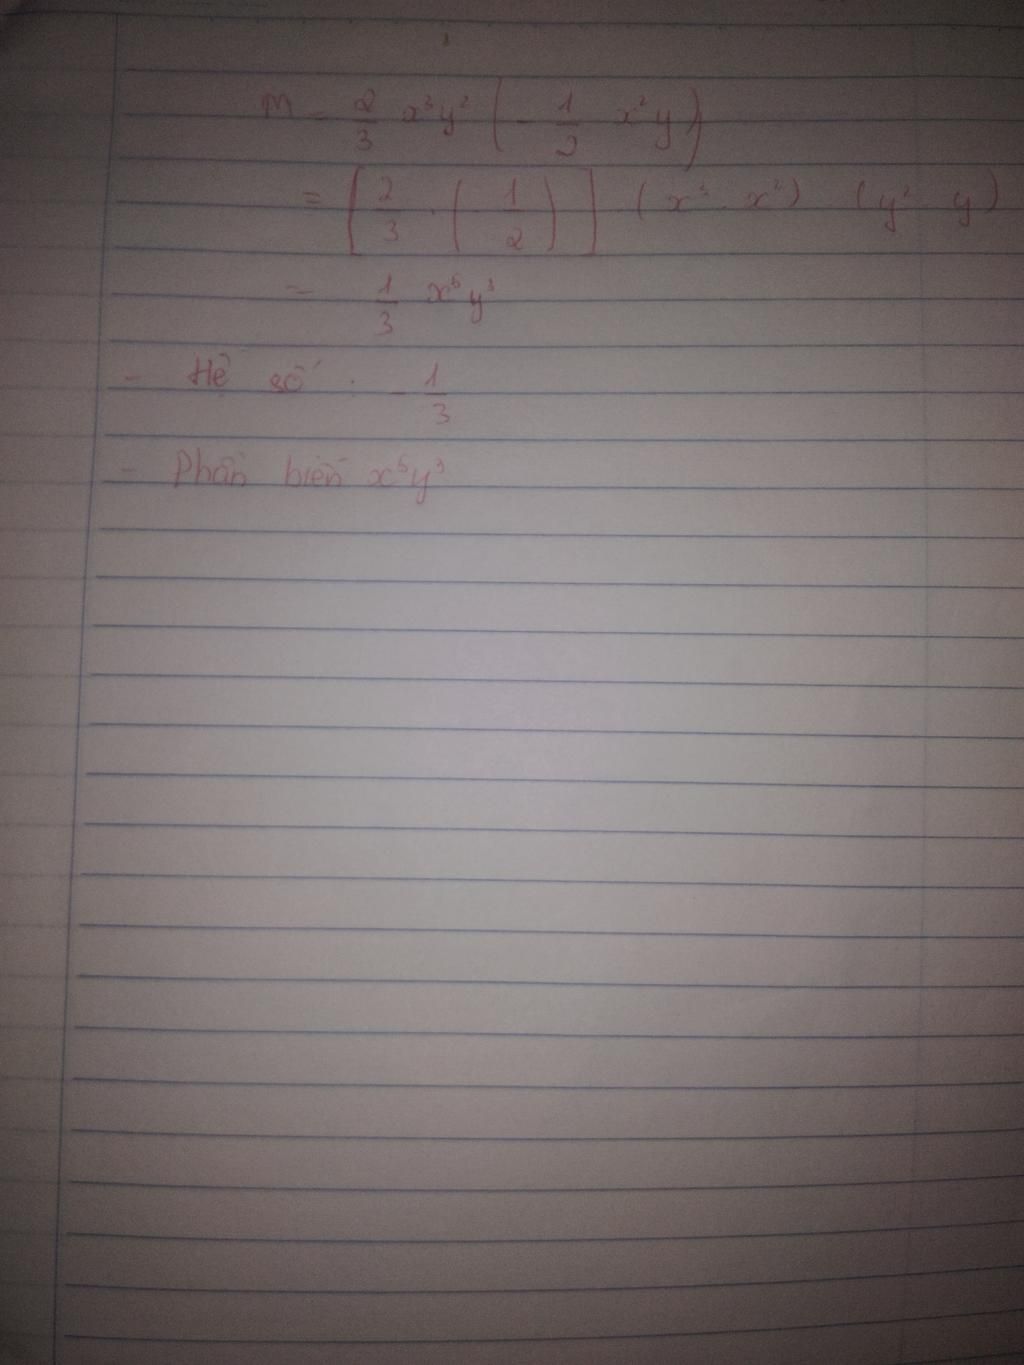 M = 2/3 x³y² (- 1/2 x²y)
= [2/3 . (1/2)] (x³ . x²) (y² y)
= 1/3 x⁵y³
- Hệ số : - 1/3
- Phần biến x⁵y³